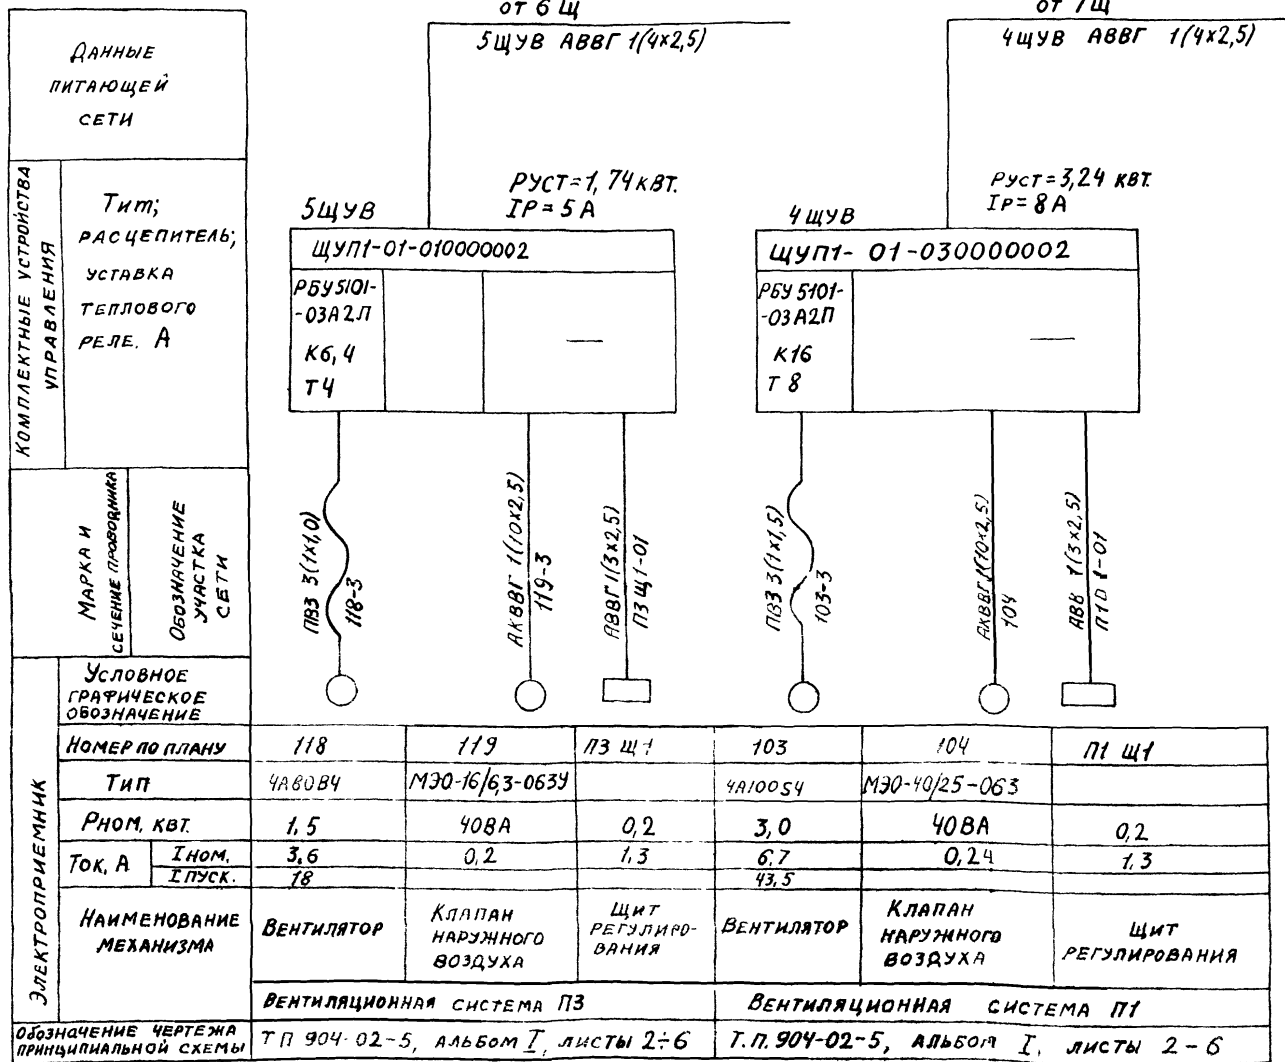 от 6 Щ
5ЩУВ АВВГ 1(4х2,5)
от 7 Щ
4ЩУВ АВВГ 1(4х2,5)
Данные
питающей
сети
Комплектные устройства
управления
Тип;
расцепитель;
уставка
теплового
реле. А
Руст=1,74 кВт.
Iр=5А
5ЩУВ
ЩУП1-01-010000002
РБУ5101-
-03А2Л
К6,4
Т4
—
Руст=3,24 кВт.
Iр=8А
4ЩУВ
ЩУП1-01-030000002
РБУ5101-
-03А2П
К16
Т 8
—
Марка и
сечение проводника
Обозначение
участка
сети
ПВ3 3(1х1,0)
118-3
АКВВГ 1(10х2,5)
119-3
АВВГ 1(3х2,5)
П3 Щ1-01
ПВ3 3(1х1,5)
103-3
АКВВГ 1(10х2,5)
104
АВВ 1(3х2,5)
1-01
Электроприемник
Условное
графическое
обозначение
Номер по плану 118 119 П3 Щ1 103 104 П1 Щ1
Тип 4А80В4 МЭО-16/6,3-063У 4А100S4 МЭО-40/25-063
Рном, кВт. 1,5 40ВА 0,2 3,0 40ВА 0,2
Ток, А Iном. 3,6 0,2 1,3 6,7 0,24 1,3
Iпуск. 18 43,5
Наименование
механизма
Вентилятор
Клапан
наружного
воздуха
Щит
регулиро-
вания
Вентилятор
Клапан
наружного
воздуха
Щит
регулирования
Вентиляционная система П3
Вентиляционная система П1
Обозначение чертежа
принципиальной схемы
ТП 904-02-5, альбом I, листы 2÷6
Т.п. 904-02-5, альбом I, листы 2-6